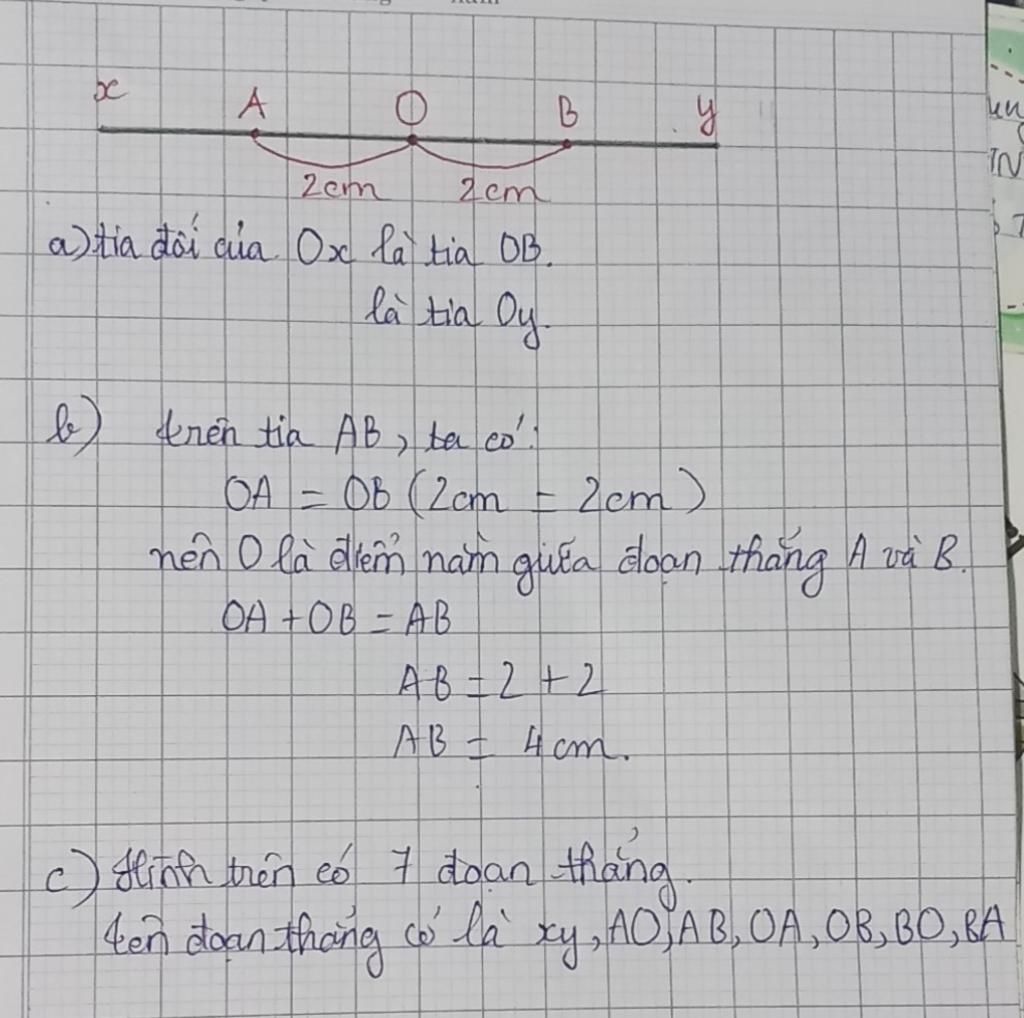 x A O B y
2cm 2cm
a) tia đối của Ox là tia OB.
là tia Oy.
b) trên tia AB, ta có:
OA = OB (2cm = 2cm)
nên O là điểm nằm giữa đoạn thẳng A và B.
OA + OB = AB
AB = 2 + 2
AB = 4cm.
c) Hình trên có 7 đoạn thẳng.
tên đoạn thẳng có là xy, AO, AB, OA, OB, BO, BA